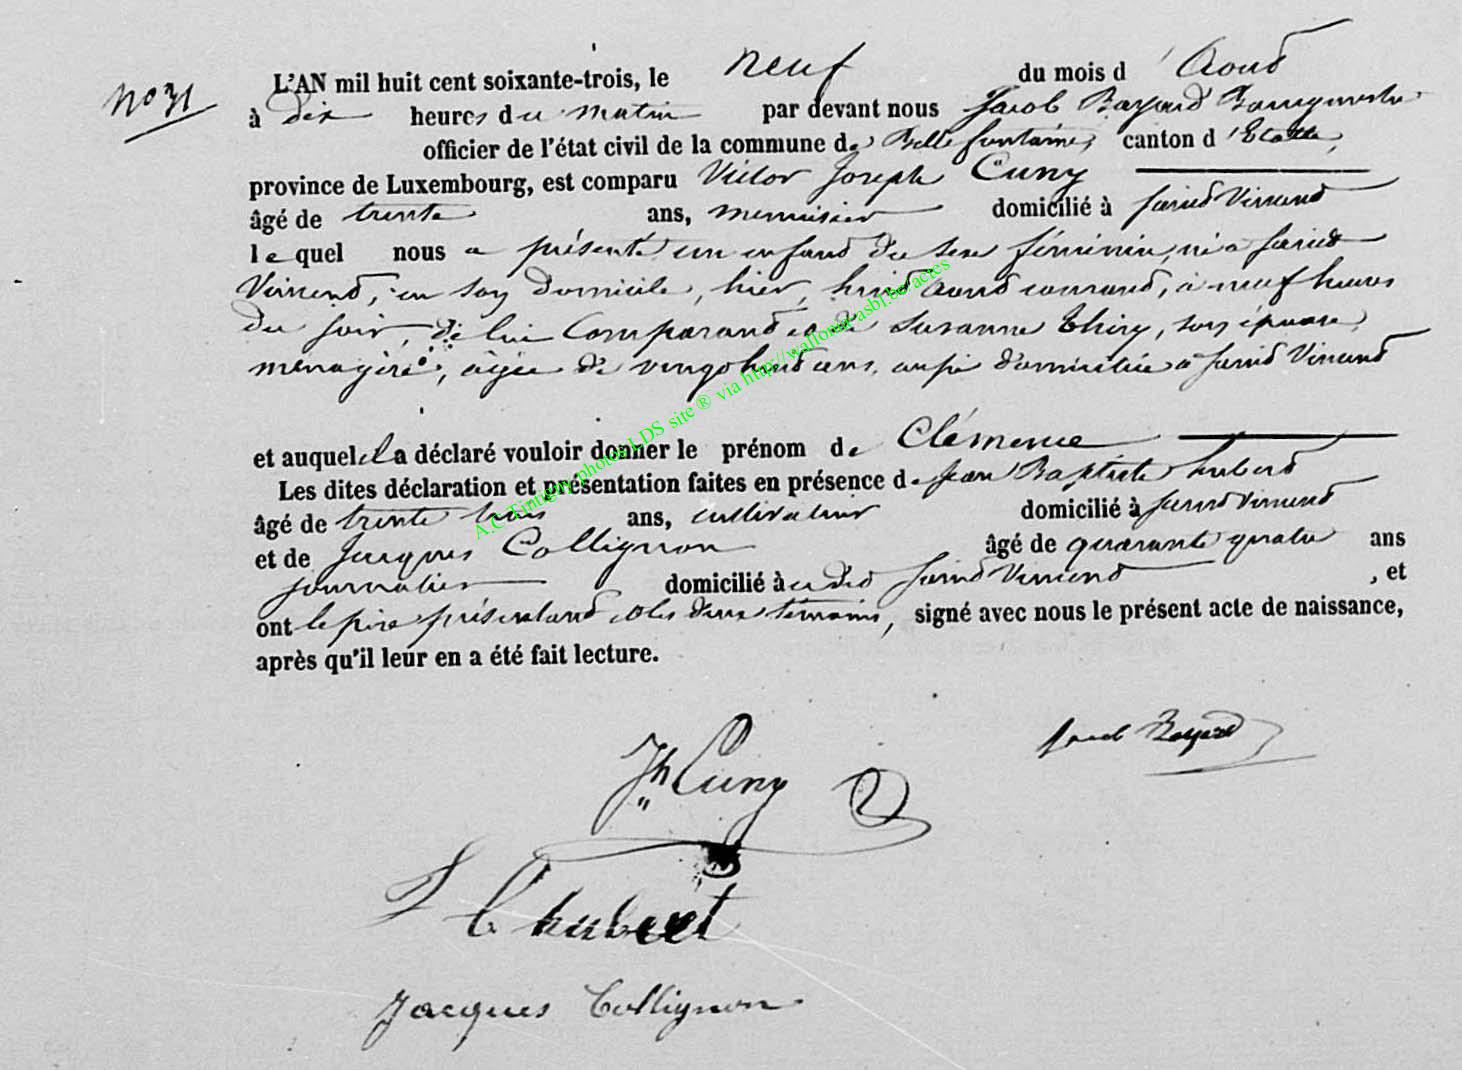 No 31
L'AN mil huit cent soixante-trois, le neuf du mois d'Aout
à dix heures du matin par devant nous Jacob Bayard Bourgmestre
officier de l'état civil de la commune de Bellefontaine, canton d'Etalle,
province de Luxembourg, est comparu Victor Joseph Cuny
âgé de trente ans, menuisier domicilié à Saint Vincent
lequel nous a présenté un enfant du sexe féminin, né à Saint
Vincent, en son domicile, hier, huit aout courant, à neuf heures
du soir, de lui Comparant et de Susanne Thiry, son épouse,
menagère, âgée de vingt huit ans, aussi domiciliée à Saint Vincent
et auquel il a déclaré vouloir donner le prénom de Clémence
Les dites déclaration et présentation faites en présence de Jean Baptiste hubert
âgé de trente trois ans, cultivateur domicilié à Saint Vincent
et de Jacques Collignon âgé de quarante quatre ans
journalier domicilié à u dit Saint Vincent, et
ont le père présentant et les deux témoins, signé avec nous le présent acte de naissance,
après qu'il leur en a été fait lecture.
Jacob Bayard
Jh Cuny
J B hubert
Jacques Collignon
A.C. Tintigny photos LDS site ® via http://wallonia-asbl.be/actes